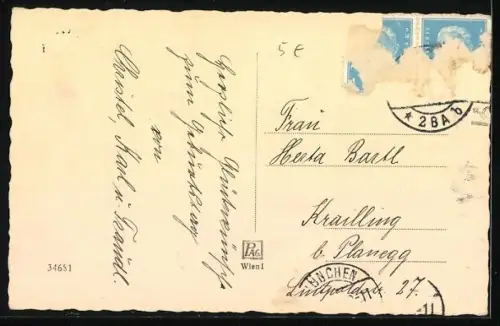 5 €
Herzliche Glückwünsche
zum Geburtstag
von
Christel, Karl u. Traudl.
34651
PAG
Wien I
* 2 BA b
Frau
Herta Bartl
Krailling
b. Planegg
Luitpoldstr. 27.
MÜNCHEN